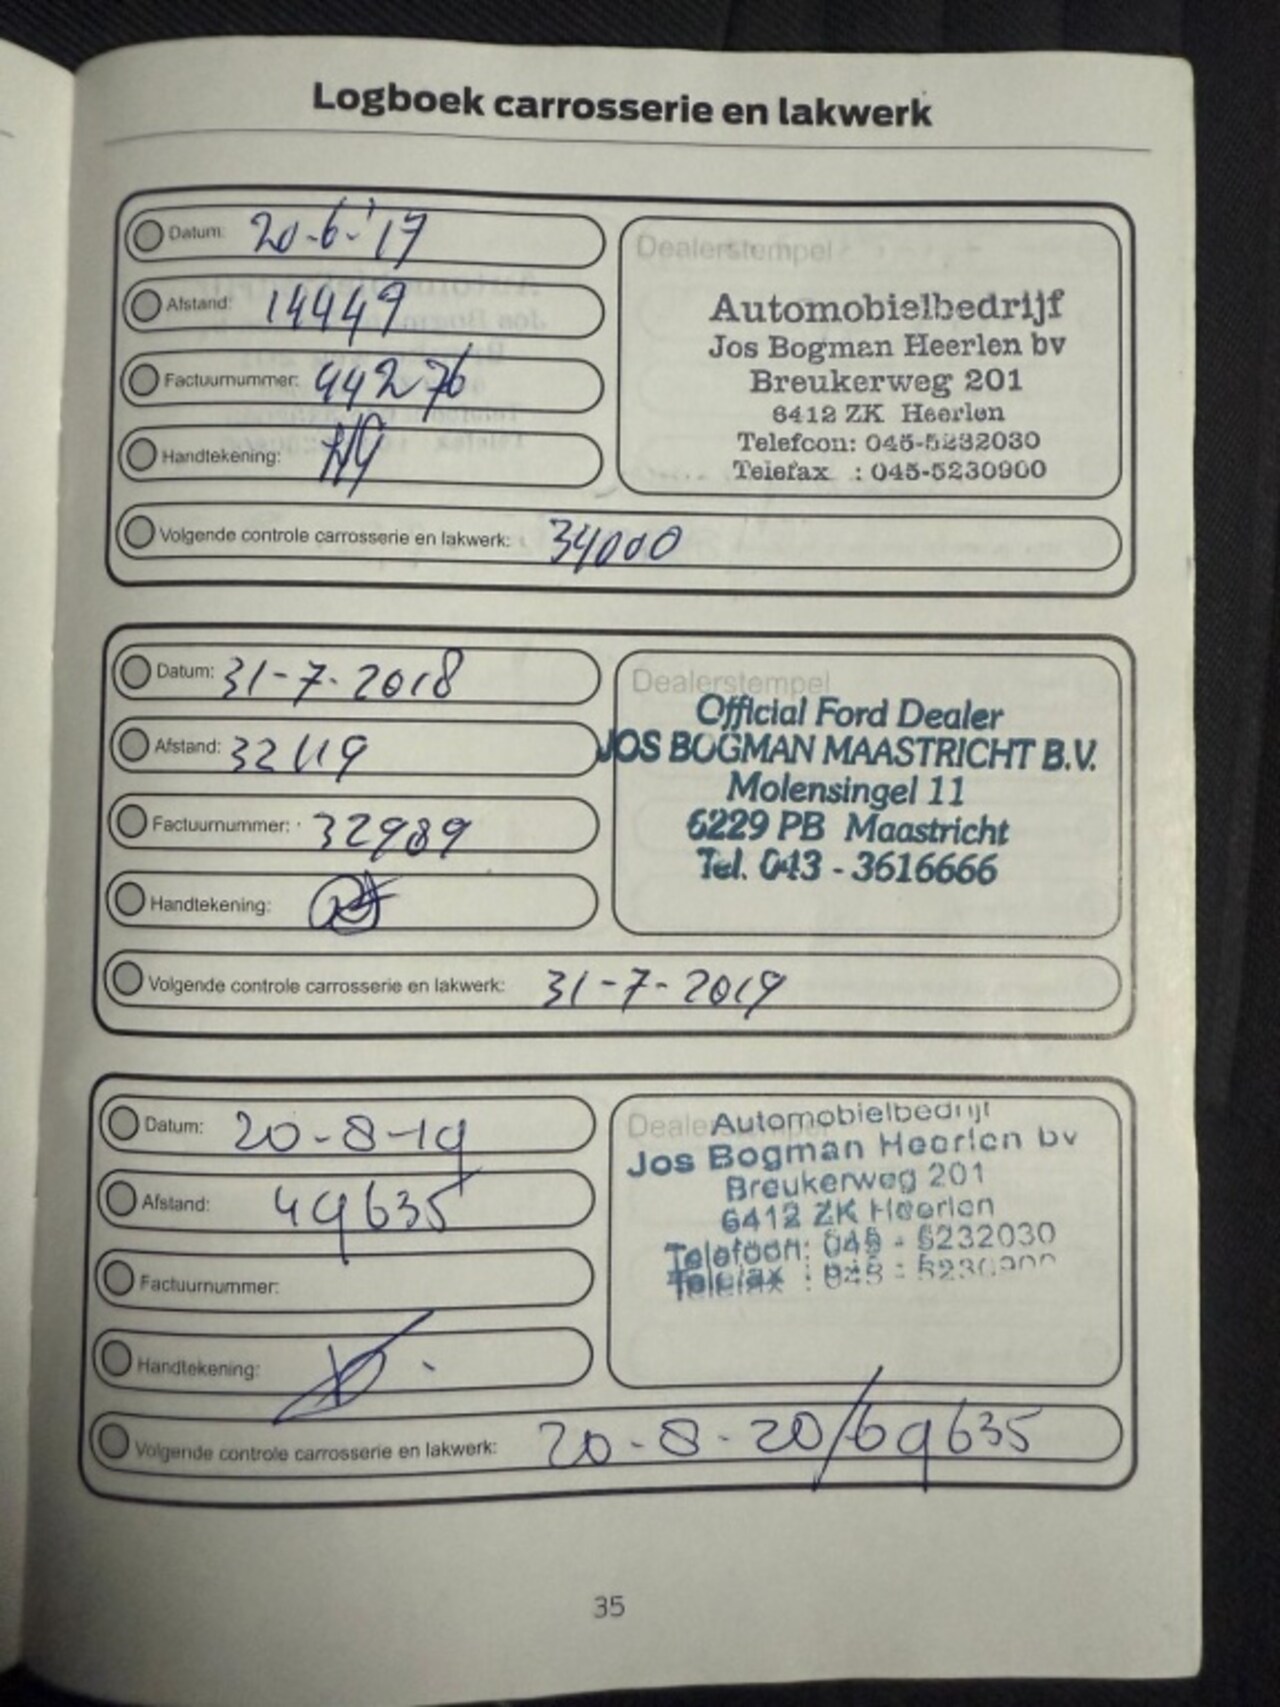 Logboek carrosserie en lakwerk
Datum: 20-6-'17
Afstand: 14449
Factuurnummer: 44276
Handtekening:
Dealerstempel
Automobielbedrijf
Jos Bogman Heerlen bv
Breukerweg 201
6412 ZK Heerlen
Telefoon: 045-5232030
Telefax : 045-5230900
Volgende controle carrosserie en lakwerk: 34000
Datum: 31-7-2018
Afstand: 32119
Factuurnummer: 32989
Handtekening:
Dealerstempel
Official Ford Dealer
JOS BOGMAN MAASTRICHT B.V.
Molensingel 11
6229 PB Maastricht
Tel. 043 - 3616666
Volgende controle carrosserie en lakwerk: 31-7-2019
Datum: 20-8-19
Afstand: 49635
Factuurnummer:
Handtekening:
Dealerstempel
Automobielbedrijf
Jos Bogman Heerlen bv
Breukerweg 201
6412 ZK Heerlen
Telefoon: 045 - 5232030
Telefax : 045 - 5230900
Volgende controle carrosserie en lakwerk: 20-8-20/69635
35